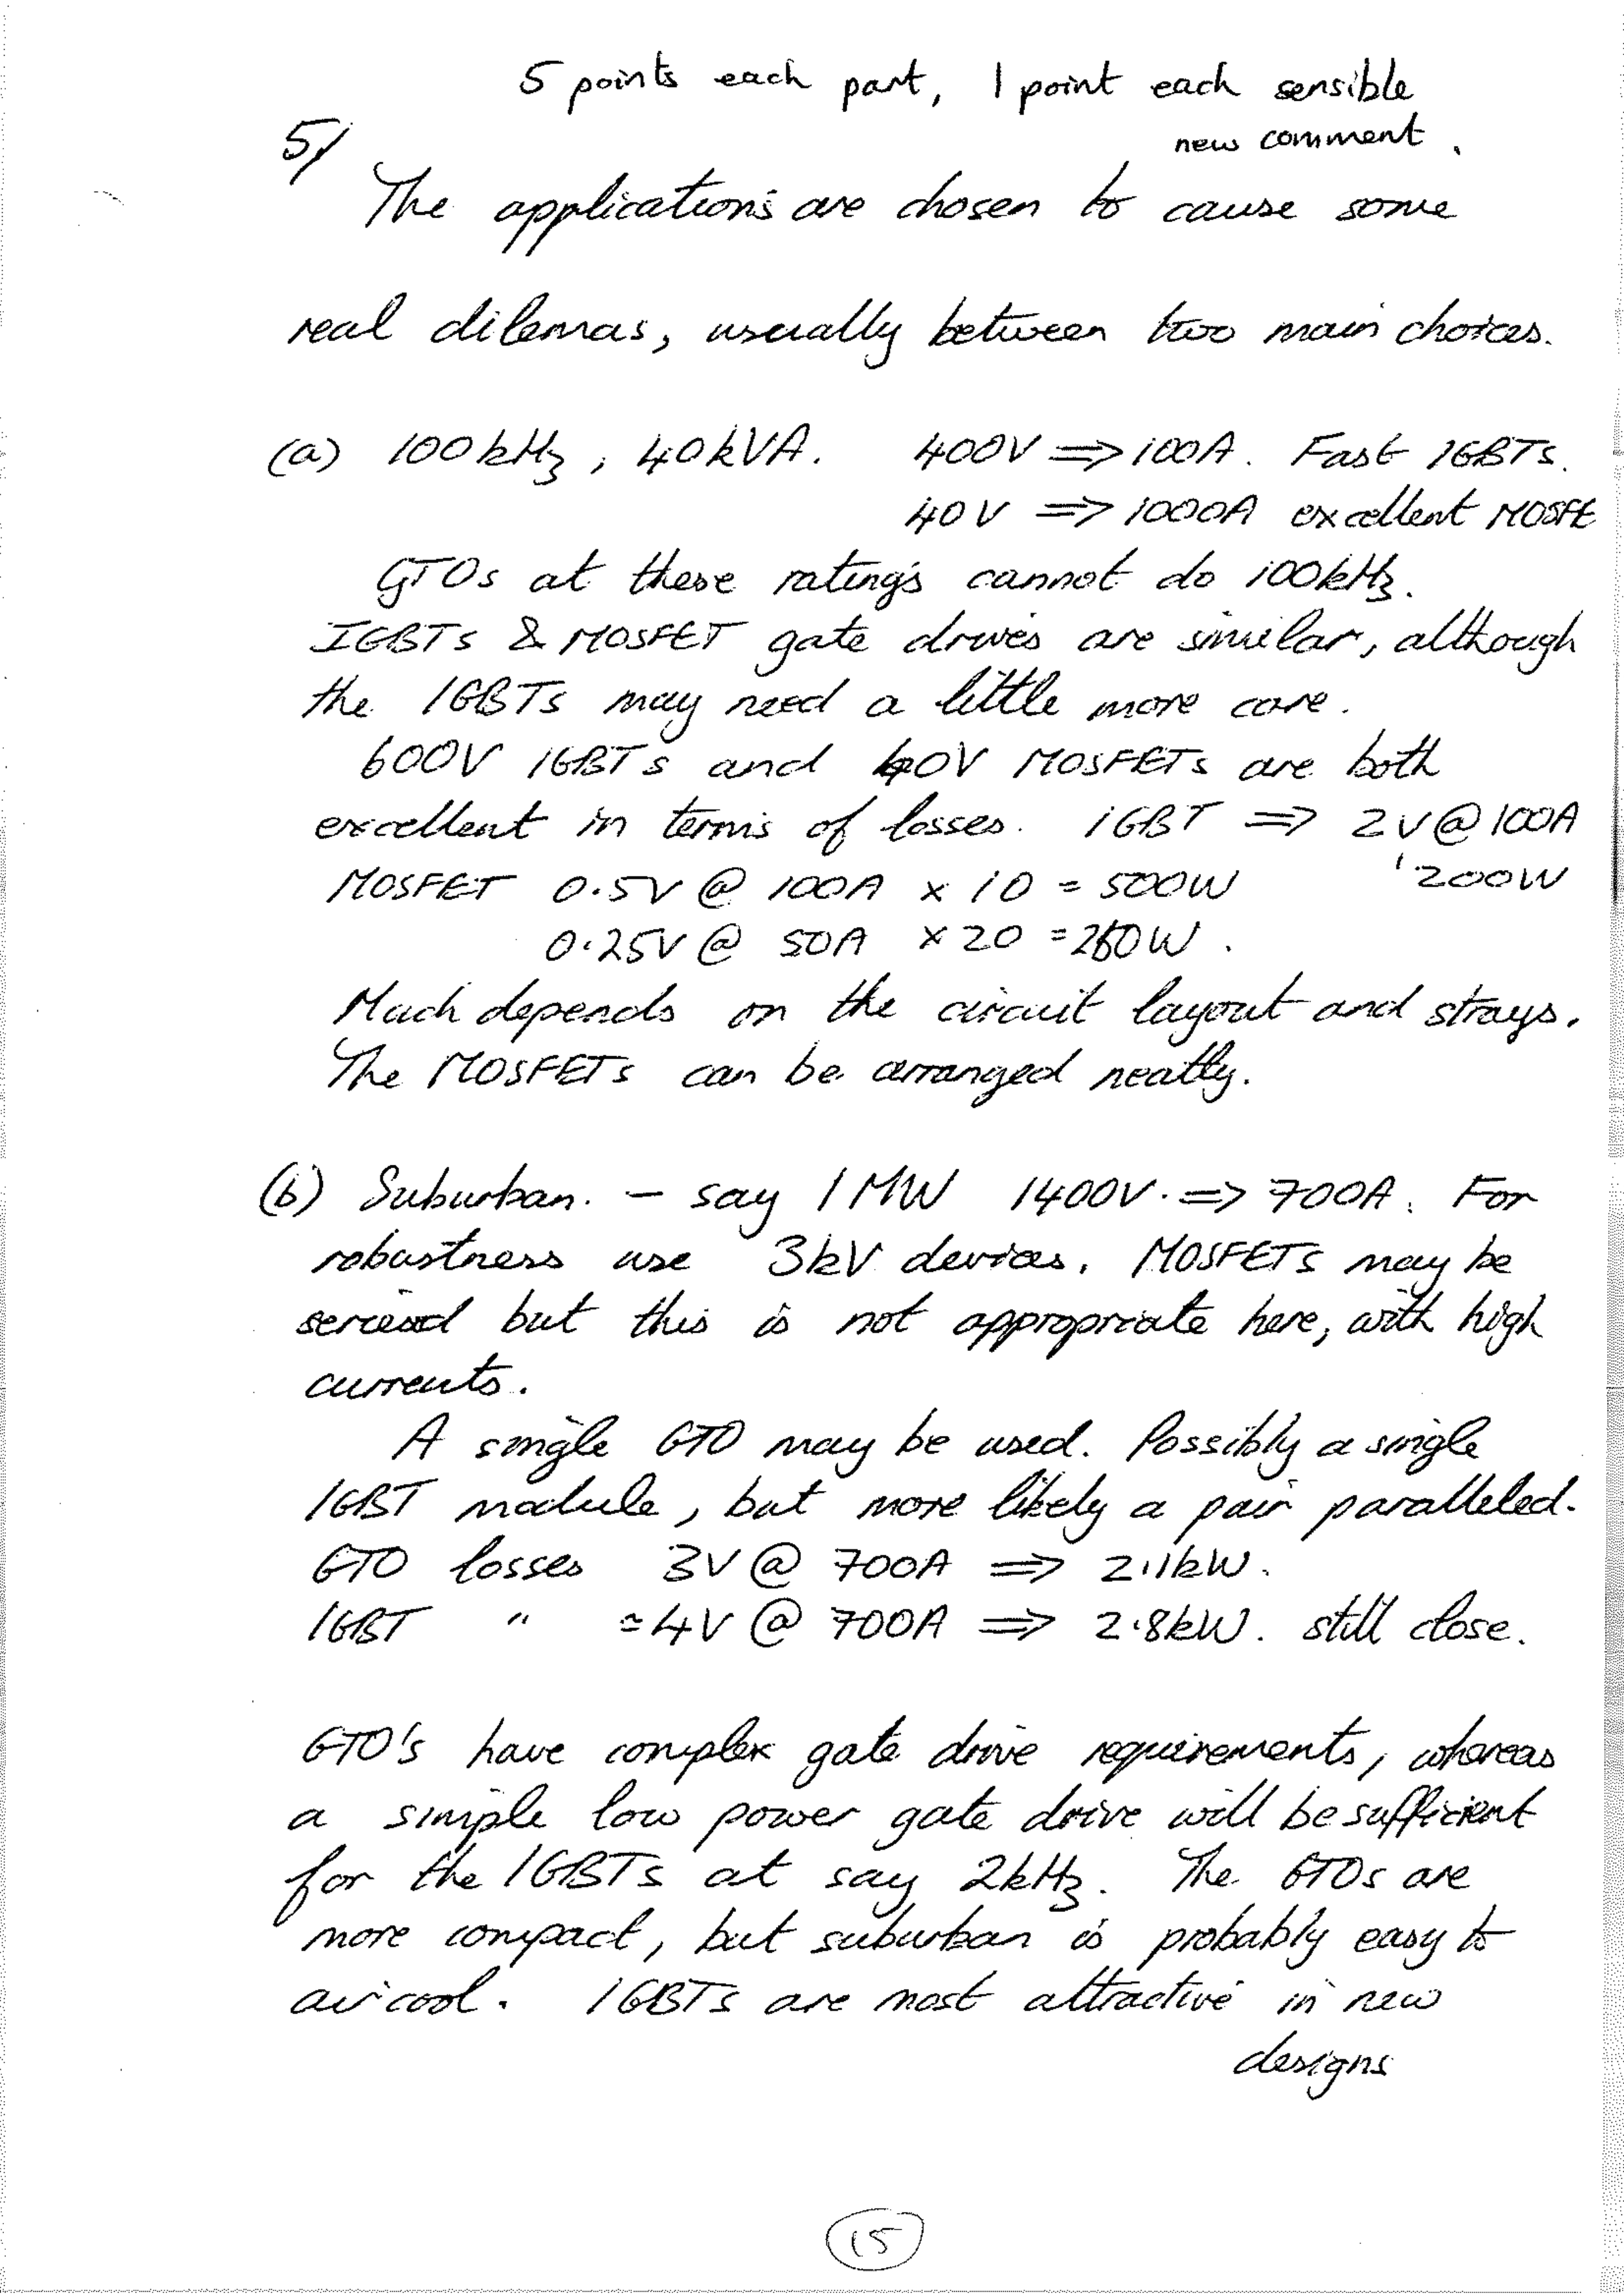 5 points each part, 1 point each sensible
new comment.
5/
The applications are chosen to cause some
real dilemas, usually between two main choices.
(a) 100kHz, 40kVA. 400V ⇒ 100A. Fast IGBTs.
40V ⇒ 1000A excellent MOSFE
GTOs at these ratings cannot do 100kHz.
IGBTs & MOSFET gate drives are similar, although
the IGBTs may need a little more care.
600V IGBTs and 40V MOSFETs are both
excellent in terms of losses. IGBT ⇒ 2V@100A
MOSFET 0.5V @ 100A × 10 = 500W 200W
0.25V @ 50A × 20 = 250W.
Much depends on the circuit layout and strays.
The MOSFETs can be arranged neatly.
(b) Suburban. – say 1MW 1400V. ⇒ 700A. For
robustness use 3kV devices. MOSFETs may be
but this is not appropriate here, with high
currents.
A single GTO may be used. Possibly a single
IGBT module, but more likely a pair paralleled.
GTO losses 3V @ 700A ⇒ 2.1kW.
IGBT " ≃4V @ 700A ⇒ 2.8kW. still close.
GTO's have complex gate drive requirements, whereas
a simple low power gate drive will be sufficient
for the IGBTs at say 2kHz. The GTOs are
more compact, but suburban is probably easy to
air cool. IGBTs are most attractive in new
designs
15